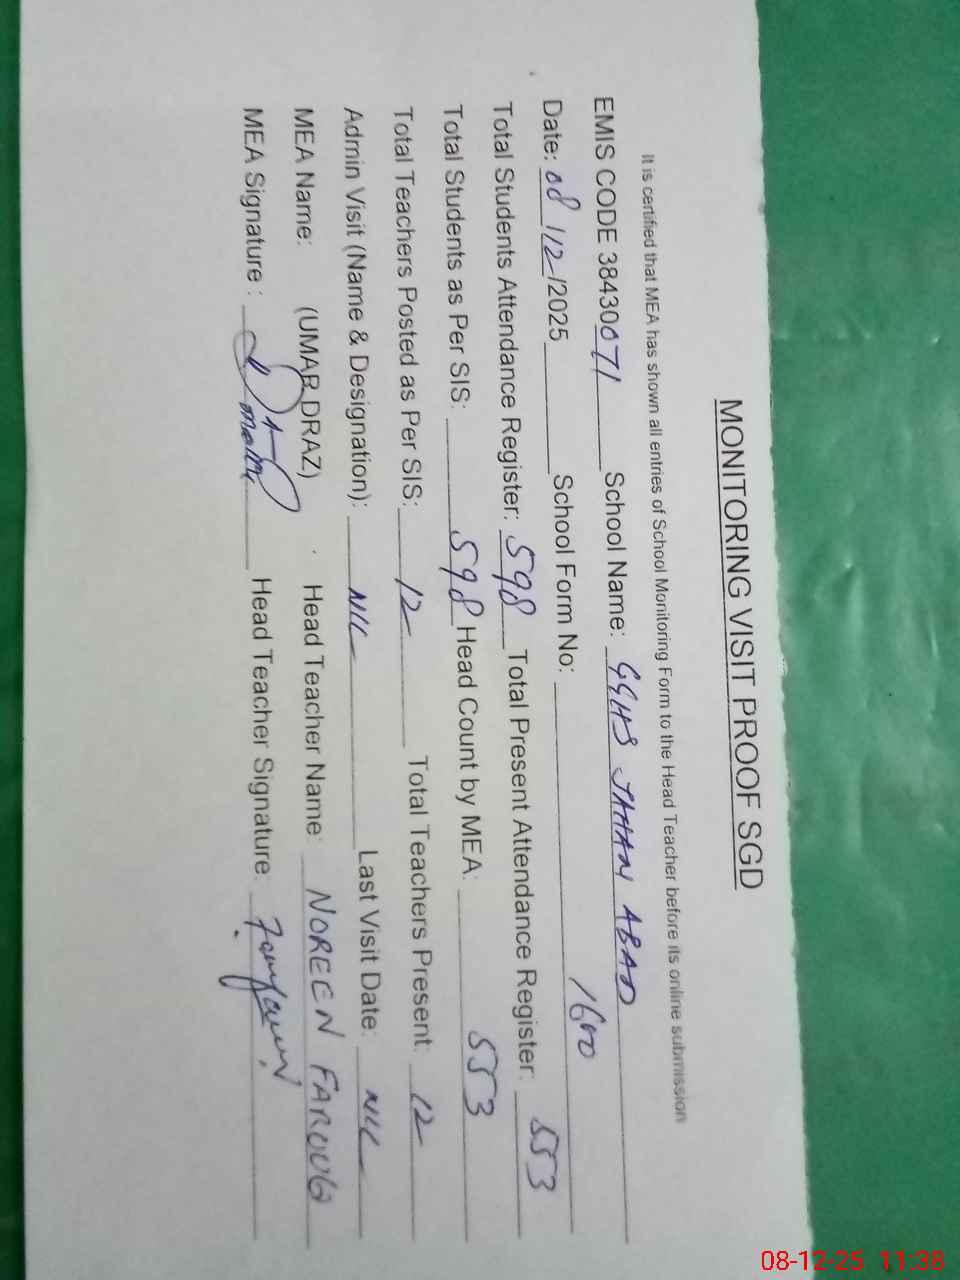 MONITORING VISIT PROOF SGD
It is certified that MEA has shown all entries of School Monitoring Form to the Head Teacher before its online submission
EMIS CODE 38430071 School Name: GGHS JAHAN ABAD
Date: 08/12/2025 School Form No: 1600
Total Students Attendance Register: 598 Total Present Attendance Register: 553
Total Students as Per SIS: 598 Head Count by MEA: 553
Total Teachers Posted as Per SIS: 12 Total Teachers Present: 12
Admin Visit (Name & Designation): NIL Last Visit Date: NIL
MEA Name: (UMAR DRAZ) Head Teacher Name: NOREEN FAROOQ
MEA Signature : Head Teacher Signature:
08-12-25 11:38